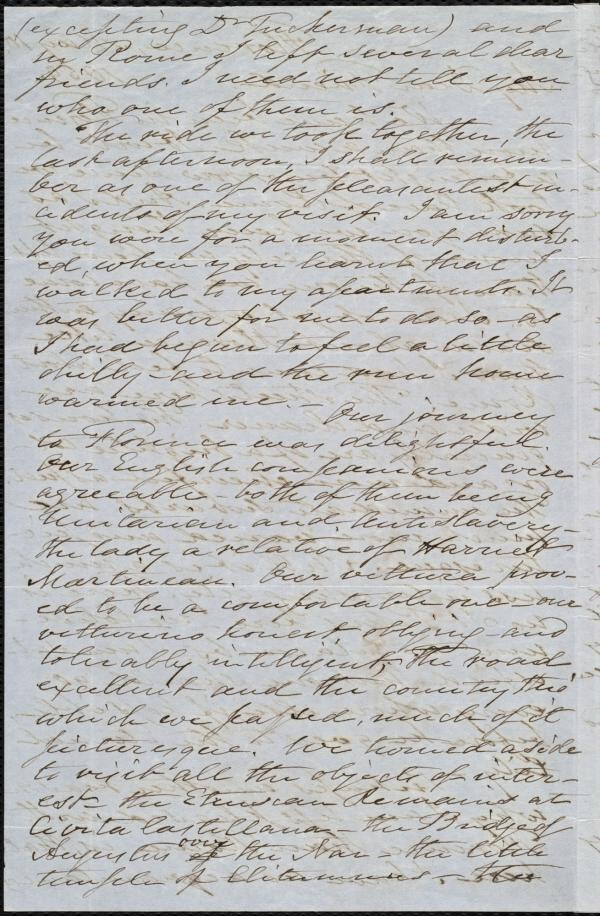 (excepting Dr Tuckerman) and
in Rome I left several dear
friends. I need not tell you
who one of them is.
The ride we took together, the
last afternoon, I shall remem-
ber as one of the pleasantest in-
cidents of my visit. I am sorry
you were for a moment disturb-
ed, when you learnt that I
walked to my apartments. It
was better for me to do so - as
I had begun to feel a little
chilly - and the run home
warmed me. - Our journey
to Florence was delightful.
Our English companions were
agreeable - both of them being
Unitarian and Antislavery -
the lady a relative of Harriet
Martineau. Our vettura prov-
ed to be a comfortable one - our
vetturino honest obliging - and
tolerably intelligent, The road
excellent and the country thro'
which we passed, much of it
picturesque. We turned aside
to visit all the objects of inter-
est - the Etruscan Remains at
Civita Castellana - the Bridge of
Augustus over the Nar - the little
temple of Clitumnus -